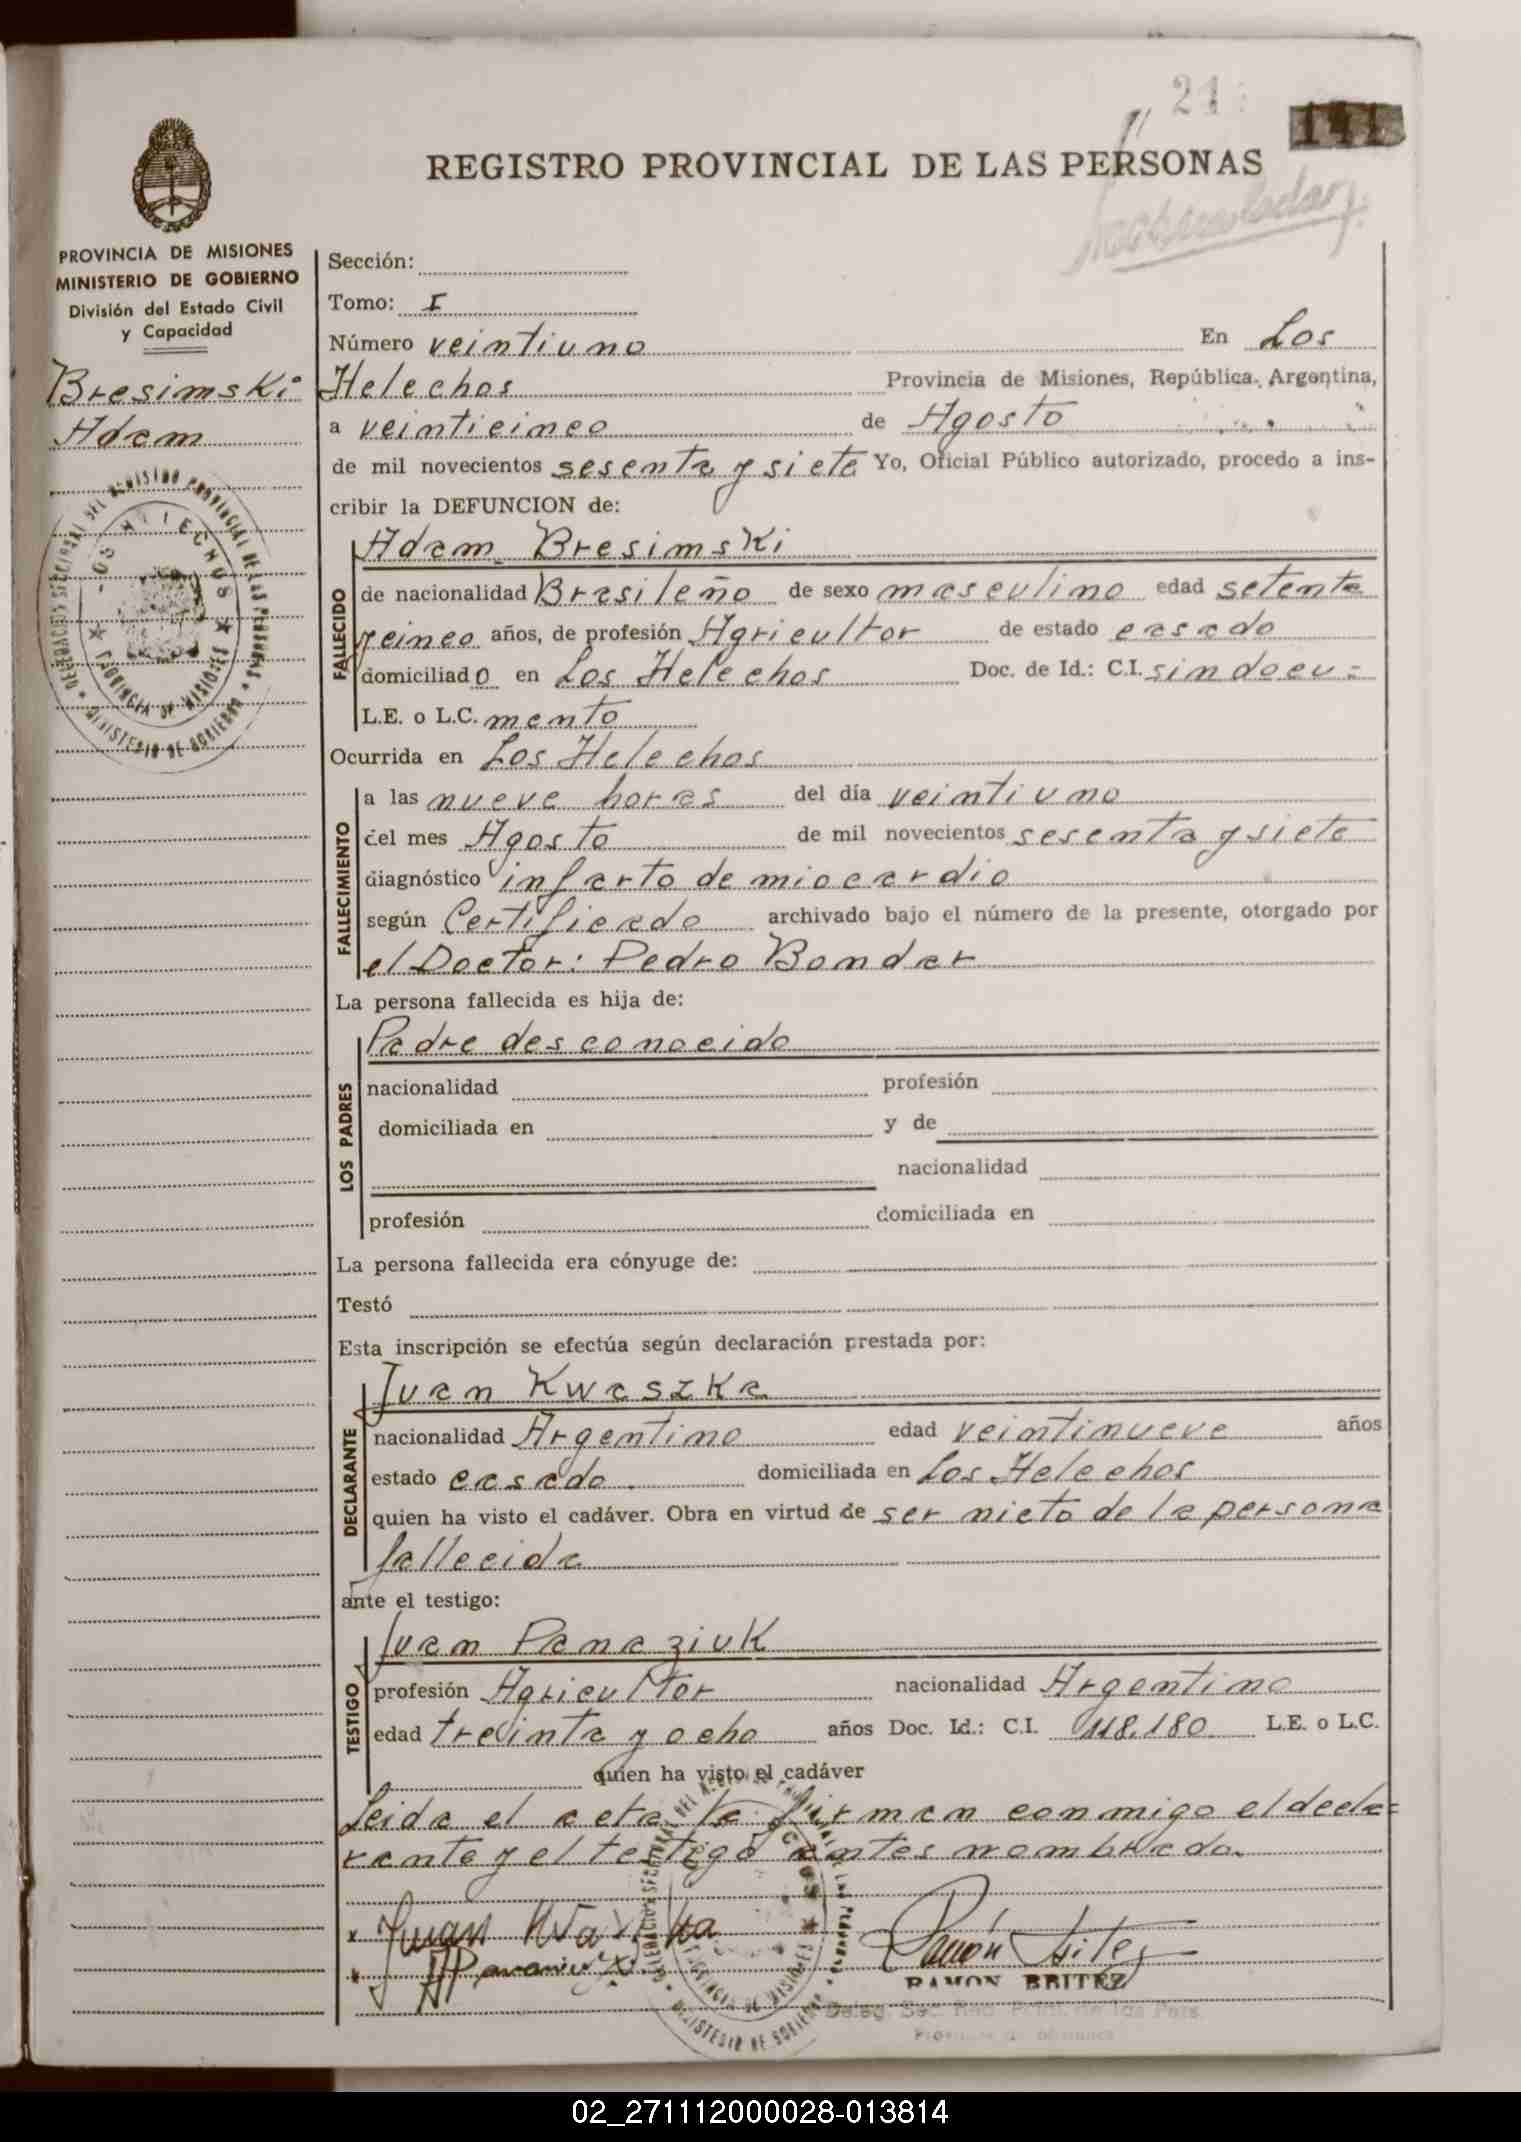 21
141
REGISTRO PROVINCIAL DE LAS PERSONAS
PROVINCIA DE MISIONES
MINISTERIO DE GOBIERNO
División del Estado Civil
y Capacidad
Bresimski
Adam
Sección:
Tomo: I
Número veintiuno En Los
Helechos Provincia de Misiones, República Argentina,
a veinticinco de Agosto
de mil novecientos sesenta y siete Yo, Oficial Público autorizado, procedo a ins-
cribir la DEFUNCION de:
FALLECIDO
Adam Bresimski
de nacionalidad Brasileño de sexo masculino edad setenta
y cinco años, de profesión Agricultor de estado casado
domiciliado en Los Helechos Doc. de Id.: C.I. sin docu=
L.E. o L.C. mento
Ocurrida en Los Helechos
FALLECIMIENTO
a las nueve horas del día veintiuno
del mes Agosto de mil novecientos sesenta y siete
diagnóstico infarto de miocardio
según Certificado archivado bajo el número de la presente, otorgado por
el Doctor: Pedro Bondar
La persona fallecida es hija de:
LOS PADRES
Padre desconocido
nacionalidad profesión
domiciliada en y de
nacionalidad
profesión domiciliada en
La persona fallecida era cónyuge de:
Testó
Esta inscripción se efectúa según declaración prestada por:
DECLARANTE
Juan Kwaszka
nacionalidad Argentino edad veintinueve años
estado casado domiciliada en Los Helechos
quien ha visto el cadáver. Obra en virtud de ser nieto de la persona
fallecida
ante el testigo:
TESTIGO
Juan Panaziuk
profesión Agricultor nacionalidad Argentino
edad treinta y ocho años Doc. Id.: C.I. 118.180 L.E. o L.C.
quien ha visto el cadáver
Leida el acta la firman conmigo el decla=
rante y el testigo antes nombrado.
Juan
Ramón Britez
RAMON BRITEZ
Deleg. Sec. Reg. Prov. de las Pers.
Provincia de Misiones
02_271112000028-013814